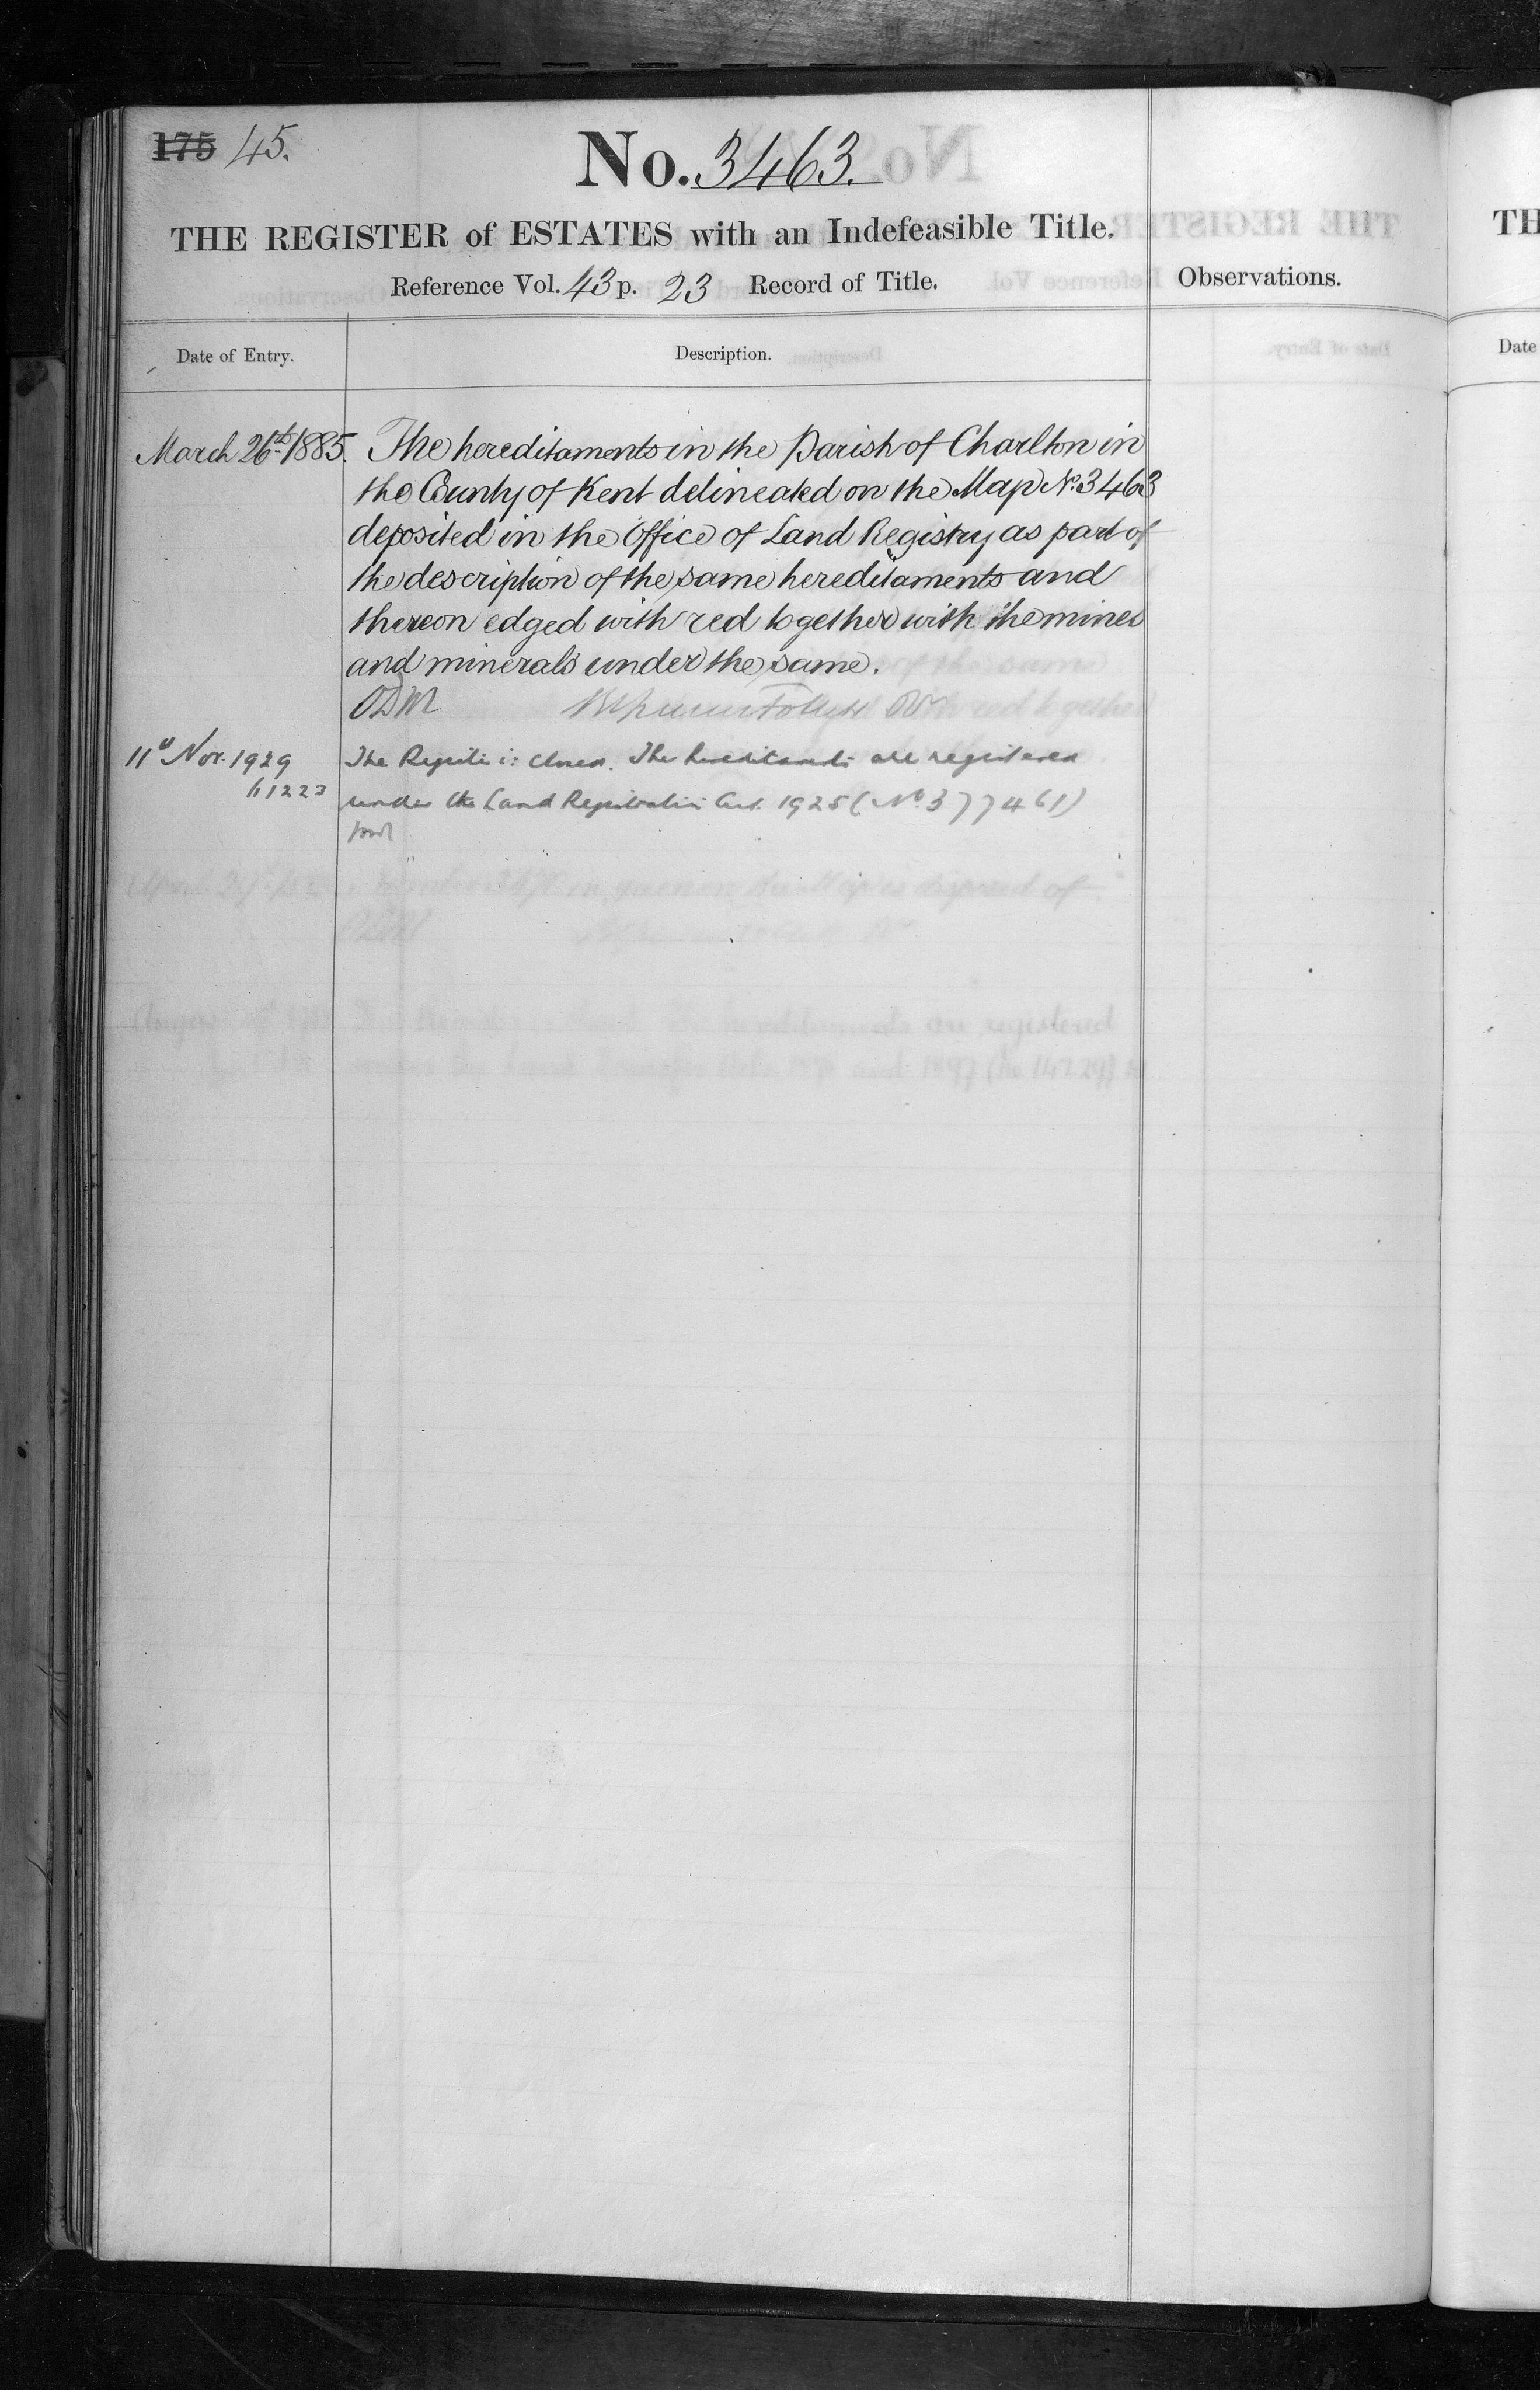 175 45.
No. 3463.
THE REGISTER of ESTATES with an Indefeasible Title.
Reference Vol. 43 p. 23 Record of Title.
Observations.
Date of Entry.
Description.
March 26th 1885. The hereditaments in the Parish of Charlton in
the County of Kent delineated on the Map No. 3463
deposited in the Office of Land Registry as part of
the description of the same hereditaments and
thereon edged with red together with the mines
and minerals under the same.
ODM
11th Nov. 1929 The Register is closed. The hereditaments are registered
61223 under the Land Registration Act. 1925 (No. 377461)
TH
Date